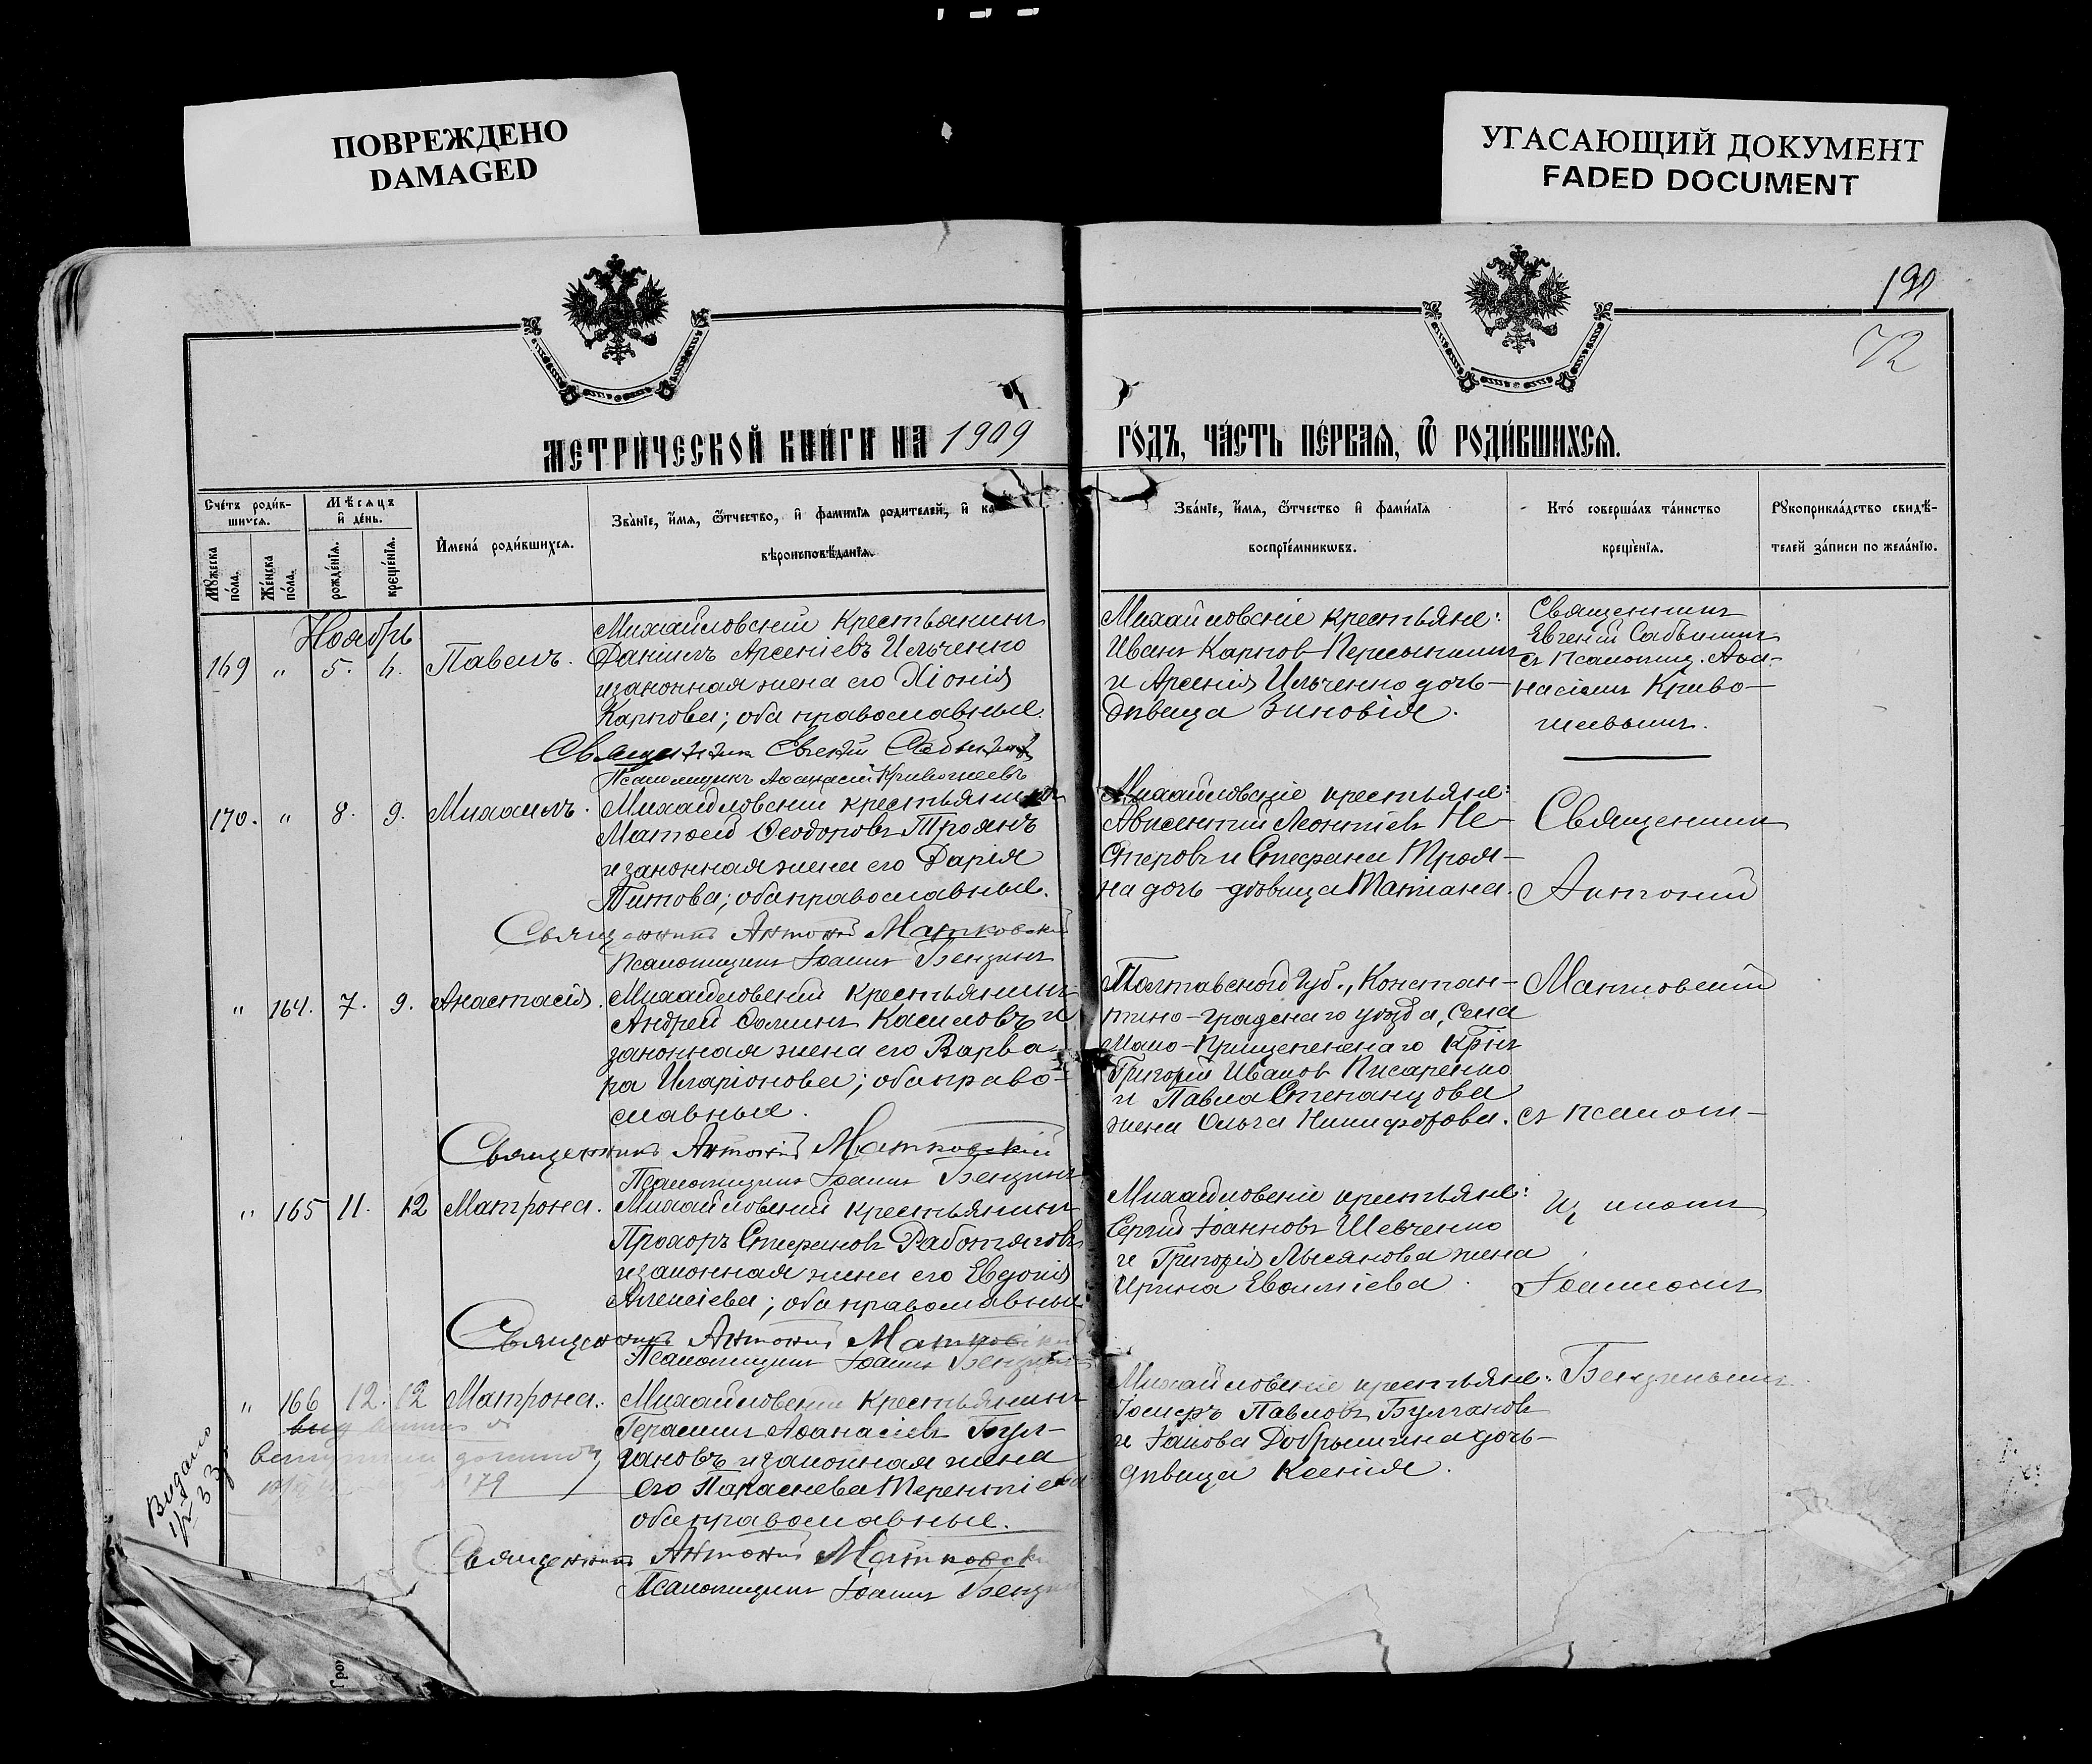 ПОВРЕЖДЕНО
DAMAGED
УГАСАЮЩИЙ ДОКУМЕНТ
FADED DOCUMENT
190
72
МЕТРИЧЕСКОЙ КНИГИ НА 1909
ГОДЪ, ЧАСТЬ ПЕРВАЯ, Ѿ РОДИВШИХСЯ.
Счетъ родив-
шихся.
Мѣсяцъ
и день.
Имена родившихся.
Званіе, имя, ѿтчество, и фамилія родителей, и ка
вѣроисповѣданія.
Мужеска
пола.
Женска
пола.
рожденія.
крещенія.
Званіе, имя, ѿтчество и фамилія
воспріемниковъ.
Кто совершалъ таинство
крещенія.
Рукоприкладство свидѣ-
телей записи по желанію.
Ноябрь
169 " 5. 6. Павелъ.
Михайловскій крестьянинъ
Даніилъ Арсеніевъ Ильченко
и законная жена его Хіонія
Карпова; оба православные.
Священникъ Евгеній Сабынинъ
Псаломщикъ Аѳанасій Кривошеевъ
Михайловскіе крестьяне:
Иванъ Карповъ Пересыпкинъ
и Арсенія Ильченко дочь-
дѣвица Зиновія.
Священникъ
Евгеній Сабынинъ
съ псаломщ. Аѳа-
насіемъ Криво-
шеевымъ.
170. " 8. 9. Михаилъ.
Михайловскій крестьянинъ
Матѳей Ѳеодоровъ Троянъ
и законная жена его Дарія
Титова; оба православные.
Священникъ Антоній Матковскій
Псаломщикъ Іоаннъ Бензинъ
Михайловскіе крестьяне:
Авксентій Леонтіевъ Не-
стеровъ и Стефана Троя-
на дочь-дѣвица Татіана.
Священникъ
Антоній
Матковскій
съ псалом-
щикомъ
Іоанномъ
" 164. 7. 9. Анастасія.
Михайловскій крестьянинъ
Андрей Ѳоминъ Касиловъ и
законная жена его Варва-
ра Иларіонова; оба право-
славные.
Священникъ Антоній Матковскій
Псаломщикъ Іоаннъ Бензинъ
Полтавской губ., Констан-
тино-градскаго уѣзда, села
Мало-
Григорій Ивановъ Писаренко
и Павла Степанцова
жена Ольга Никифорова.
" 165 11. 12 Матрона.
Михайловскій крестьянинъ
Прохоръ Стефановъ Работяговъ
и законная жена его Евдокія
Алексіева; оба православные
Священникъ Антоній Матковскій
Псаломщикъ Іоаннъ Бензинъ
Михайловскіе крестьяне:
Сергій Іоанновъ Шевченко
и Григорія Лысянова жена
Ирина Евѳиміева.
" 166 12. 12 Матрона.
Михайловскій крестьянинъ
Герасимъ Аѳанасіевъ Бул-
гановъ и законная жена
его Параскева Терентіева
оба православные.
Священникъ Антоній Матковскі
Псаломщикъ Іоаннъ Бензин
Михайловскіе крестьяне:
Іосифъ Павловъ Булгановъ
и Іакова Добрынина дочь-
дѣвица Ксенія.
179
Видано